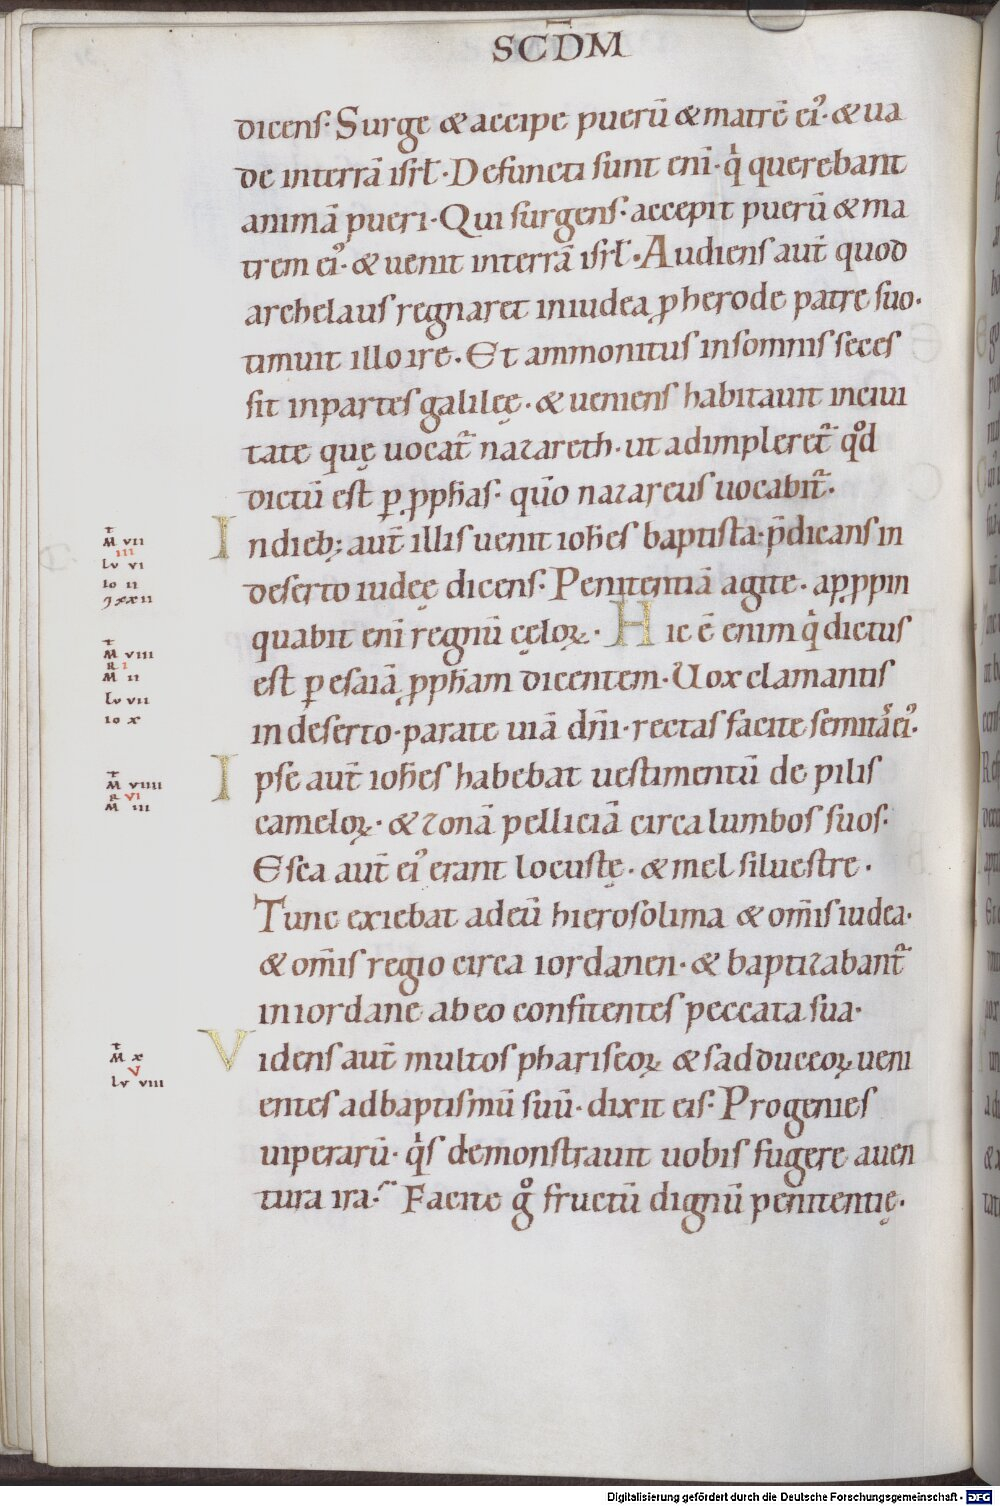 SCDM
dicens· Surge & accipe puerū & matrē ei᾿· & ua
de interrā isrł· Defuncti sunt enī· q̇ querebant
animā pueri· Qui surgens· accepit puerū & ma
trem ei᾿· & uenit interrā isrł· Audiens aut̄ quod
archelaus regnaret iniudea p̱ herode patre suo·
timuit illo ire· Et ammonitus insomnis seces
sit inpartes galileę· & ueniens habitauit inciui
tate quę uocat᷑ nazareth· ut adimpleret᷑ qd̊
dictū est ꝑ ꝓphas· quō nazareus uocabit᷑·
In dieb; aut̄ illis uenit iohēs baptista· p̄dicans in
deserto iudeę dicens· Penitentiā agite· apꝓpin
quabit enī regnū cęloꝝ· Hic ē enim q̇ dictus
est ꝑ esaiā ꝓpham dicentem· Uox clamantis
in deserto· parate uiā dn̄i· rectas facite semitas ei᾿·
Ipse aut̄ iohēs habebat uestimentū de pilis
cameloꝝ· & zonā pelliciā circa lumbos suos·
Esca aut̄ ei᾿ erant locustę· & mel siluestre·
Tunc exiebat adeū hierosolima & om̄is iudea·
& om̄is regio circa iordanen· & baptizabant᷑
in iordane ab eo confitentes peccata sua·
Videns aut̄ multos phariseoꝝ & sadduceoꝝ ueni
entes adbaptismū suū· dixit eis· Progenies
uiperarū· q̇s demonstrauit uobis fugere auen
tura ira· Facite g̊ fructū dignū penitentię·
M VII
III
LV VI
IO II
M VIII
R I
M II
LV VII
IO X
M VIIII
R VI
M III
M X
V
LV VIII
Digitalisierung gefördert durch die Deutsche Forschungsgemeinschaft - DFG